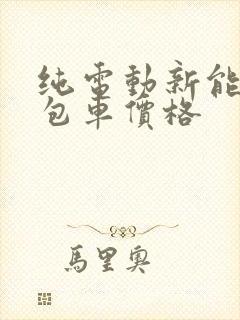 纯電動新能
包車價格
馬里奧